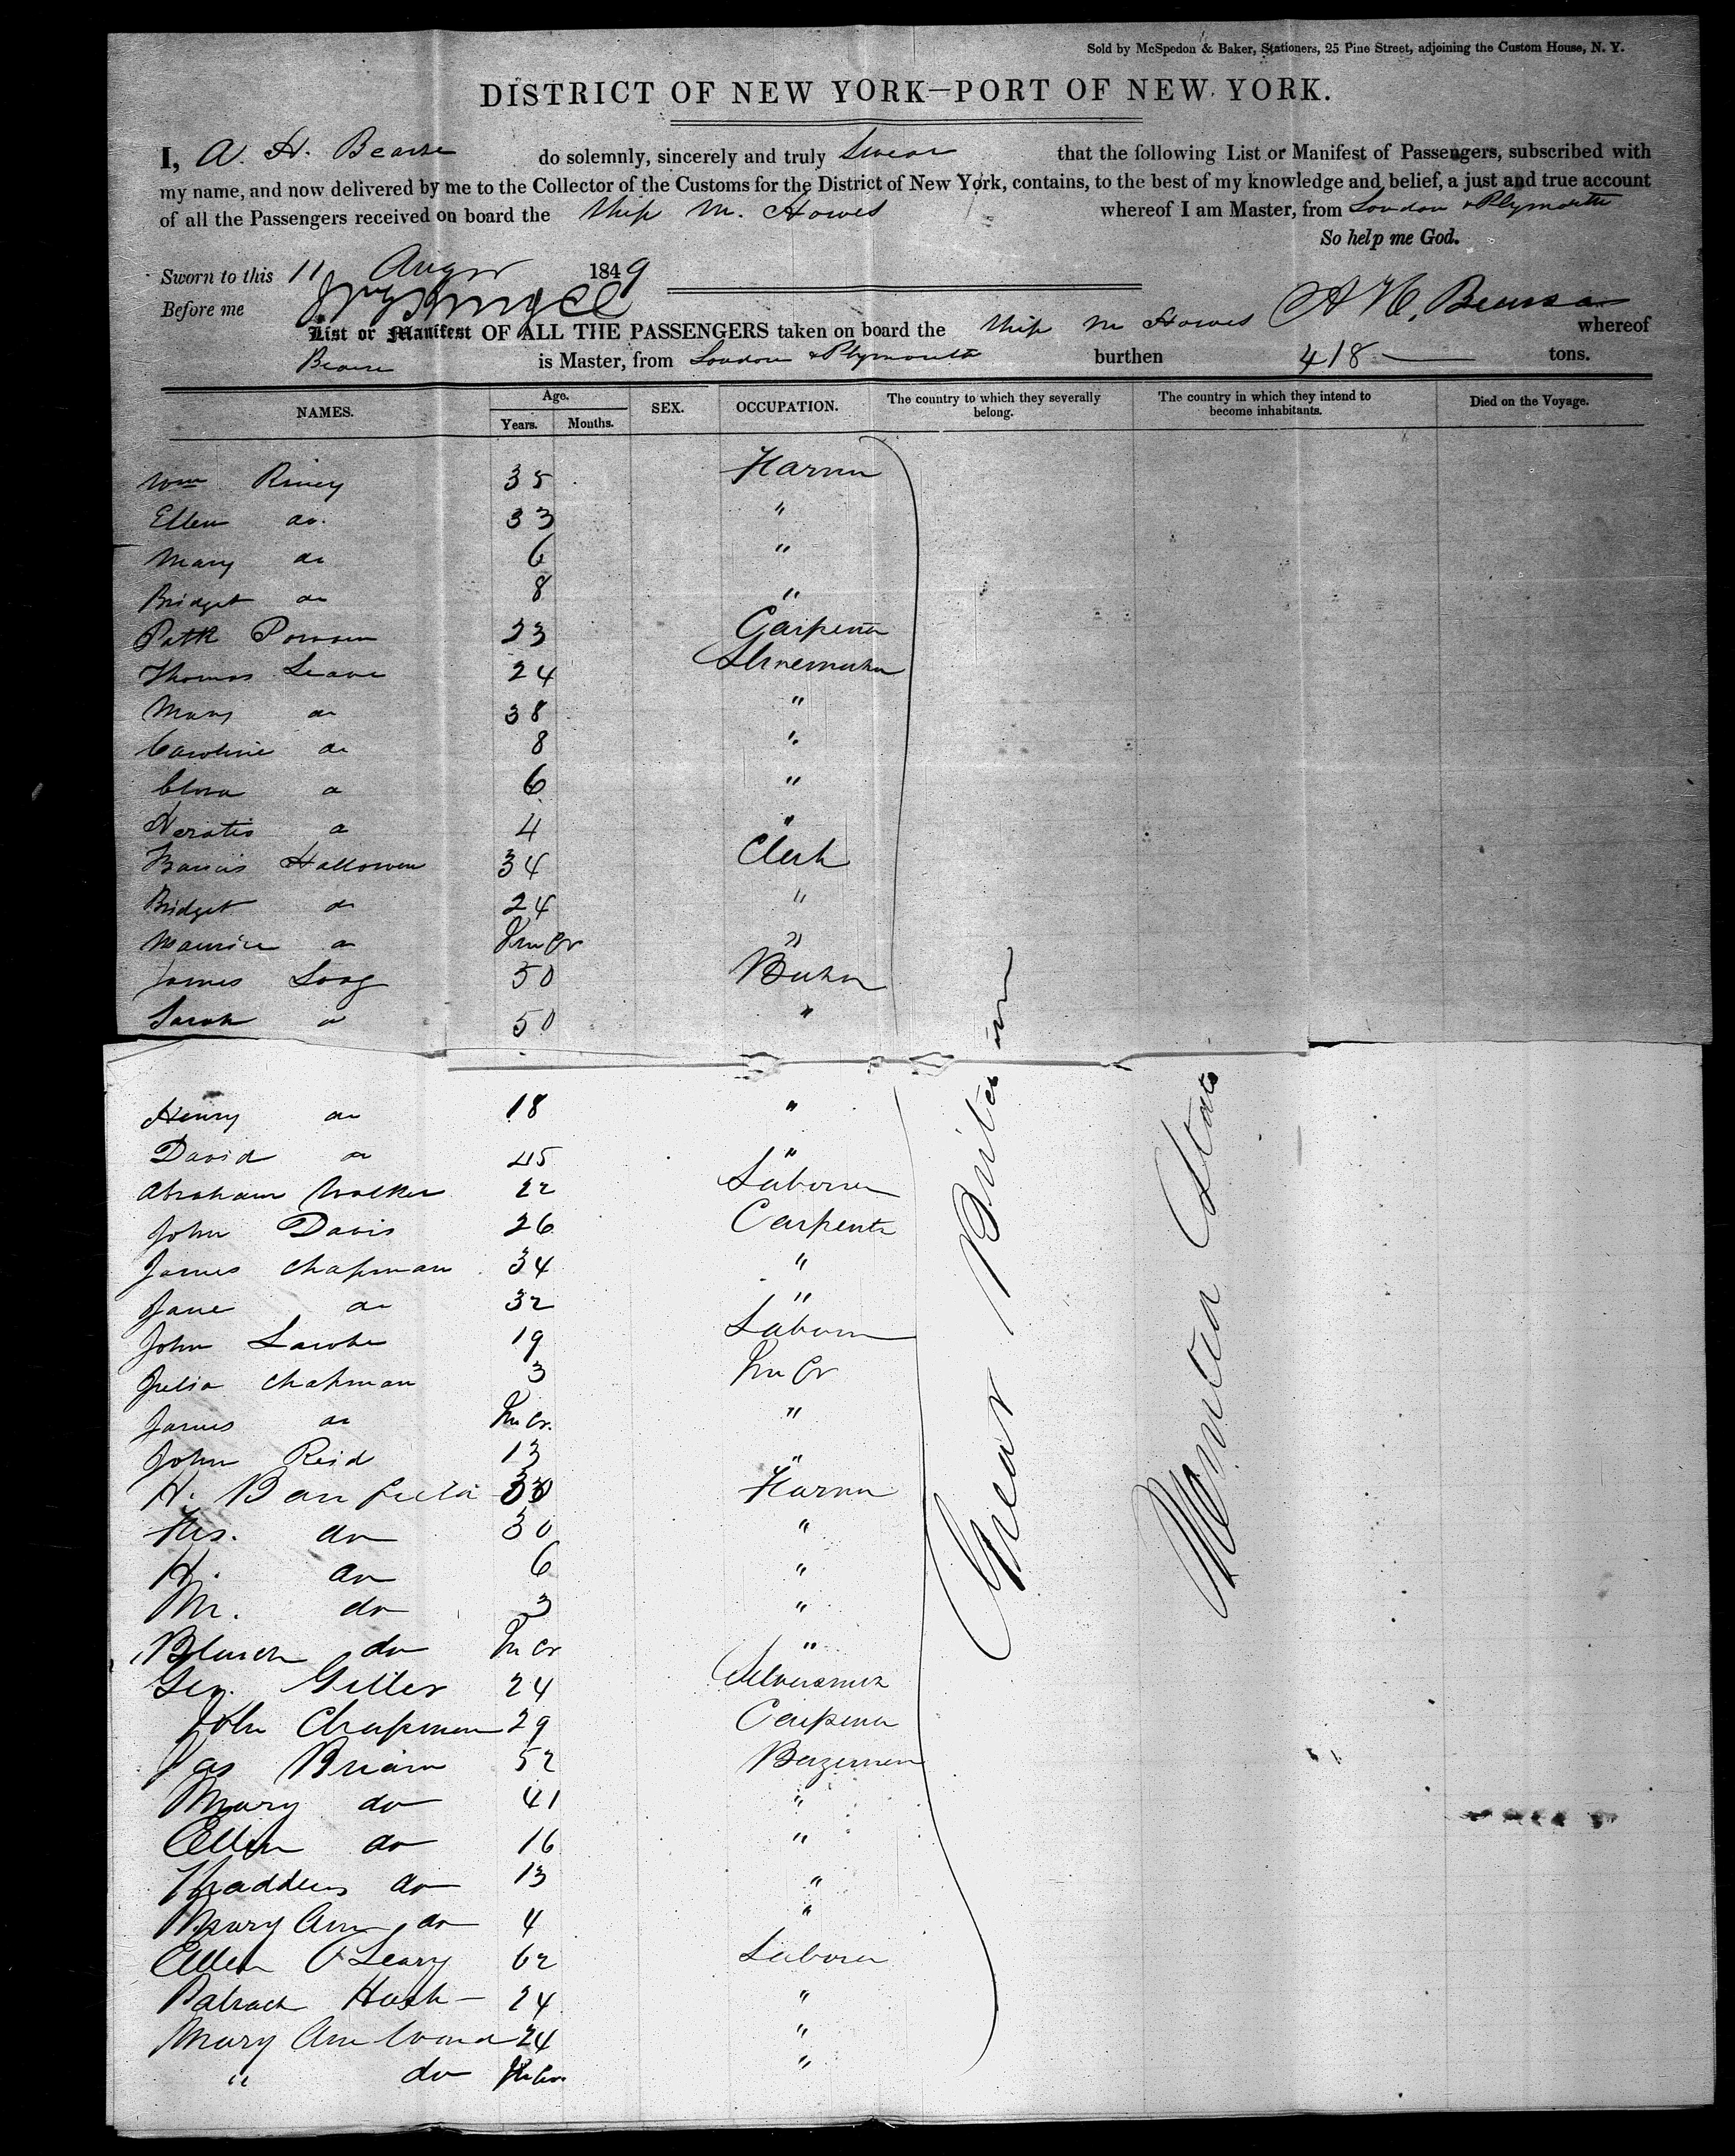 Sold by McSpedon & Baker, Stationers, 25 Pine Street, adjoining the Custom House, N. Y.
DISTRICT OF NEW YORK—PORT OF NEW YORK.
I, A. H. Bearse do solemnly, sincerely and truly Swear that the following List or Manifest of Passengers, subscribed with
my name, and now delivered by me to the Collector of the Customs for the District of New York, contains, to the best of my knowledge and belief, a just and true account
of all the Passengers received on board the Ship M. Howes whereof I am Master, from London & Plymouth
So help me God.
Sworn to this 11 Augst 1849
Before me
A H. Bearse
List or Manifest OF ALL THE PASSENGERS taken on board the Ship M Howes whereof
Bearse is Master, from London & Plymouth burthen 418 tons.
NAMES. Age. Years. Months. SEX. OCCUPATION. The country to which they severally belong. The country in which they intend to become inhabitants. Died on the Voyage.
Wm Riney 35 Farmr
Ellen do. 33 "
Mary do 6 "
Bridget do 8 "
Patk 23 Carpenter
Thomas Leave 24 Shoemaker
Mary do 38 "
Caroline do 8 "
Clora do 6 "
Horatio do 4 "
Francis Halloween 34 Clerk
Bridget do 24 "
Maurice do "
James Long 50
Sarah do 50 "
Henry do 18 "
David do 45 "
Abraham Walker 22 Laborer
John Davis 26 Carpenter
James Chapman 34 "
Jane do 32 "
John 19 Laborer
Julia Chapman 3
James do "
John Reid 13 "
H. Banfield Farmr
Mrs. do 30 "
H. do 6 "
M. do 3 "
do "
Geo. 24 Silversmith
John Chapman 29 Carpenter
Jas Briain 52
Mary do 41 "
Ellen do 16 "
Thaddeus do 13 "
Mary Ann do 4 "
Ellen O'Leary 62 Laborer
24 "
Mary Ann 24 "
" do "
Great Britain
United States